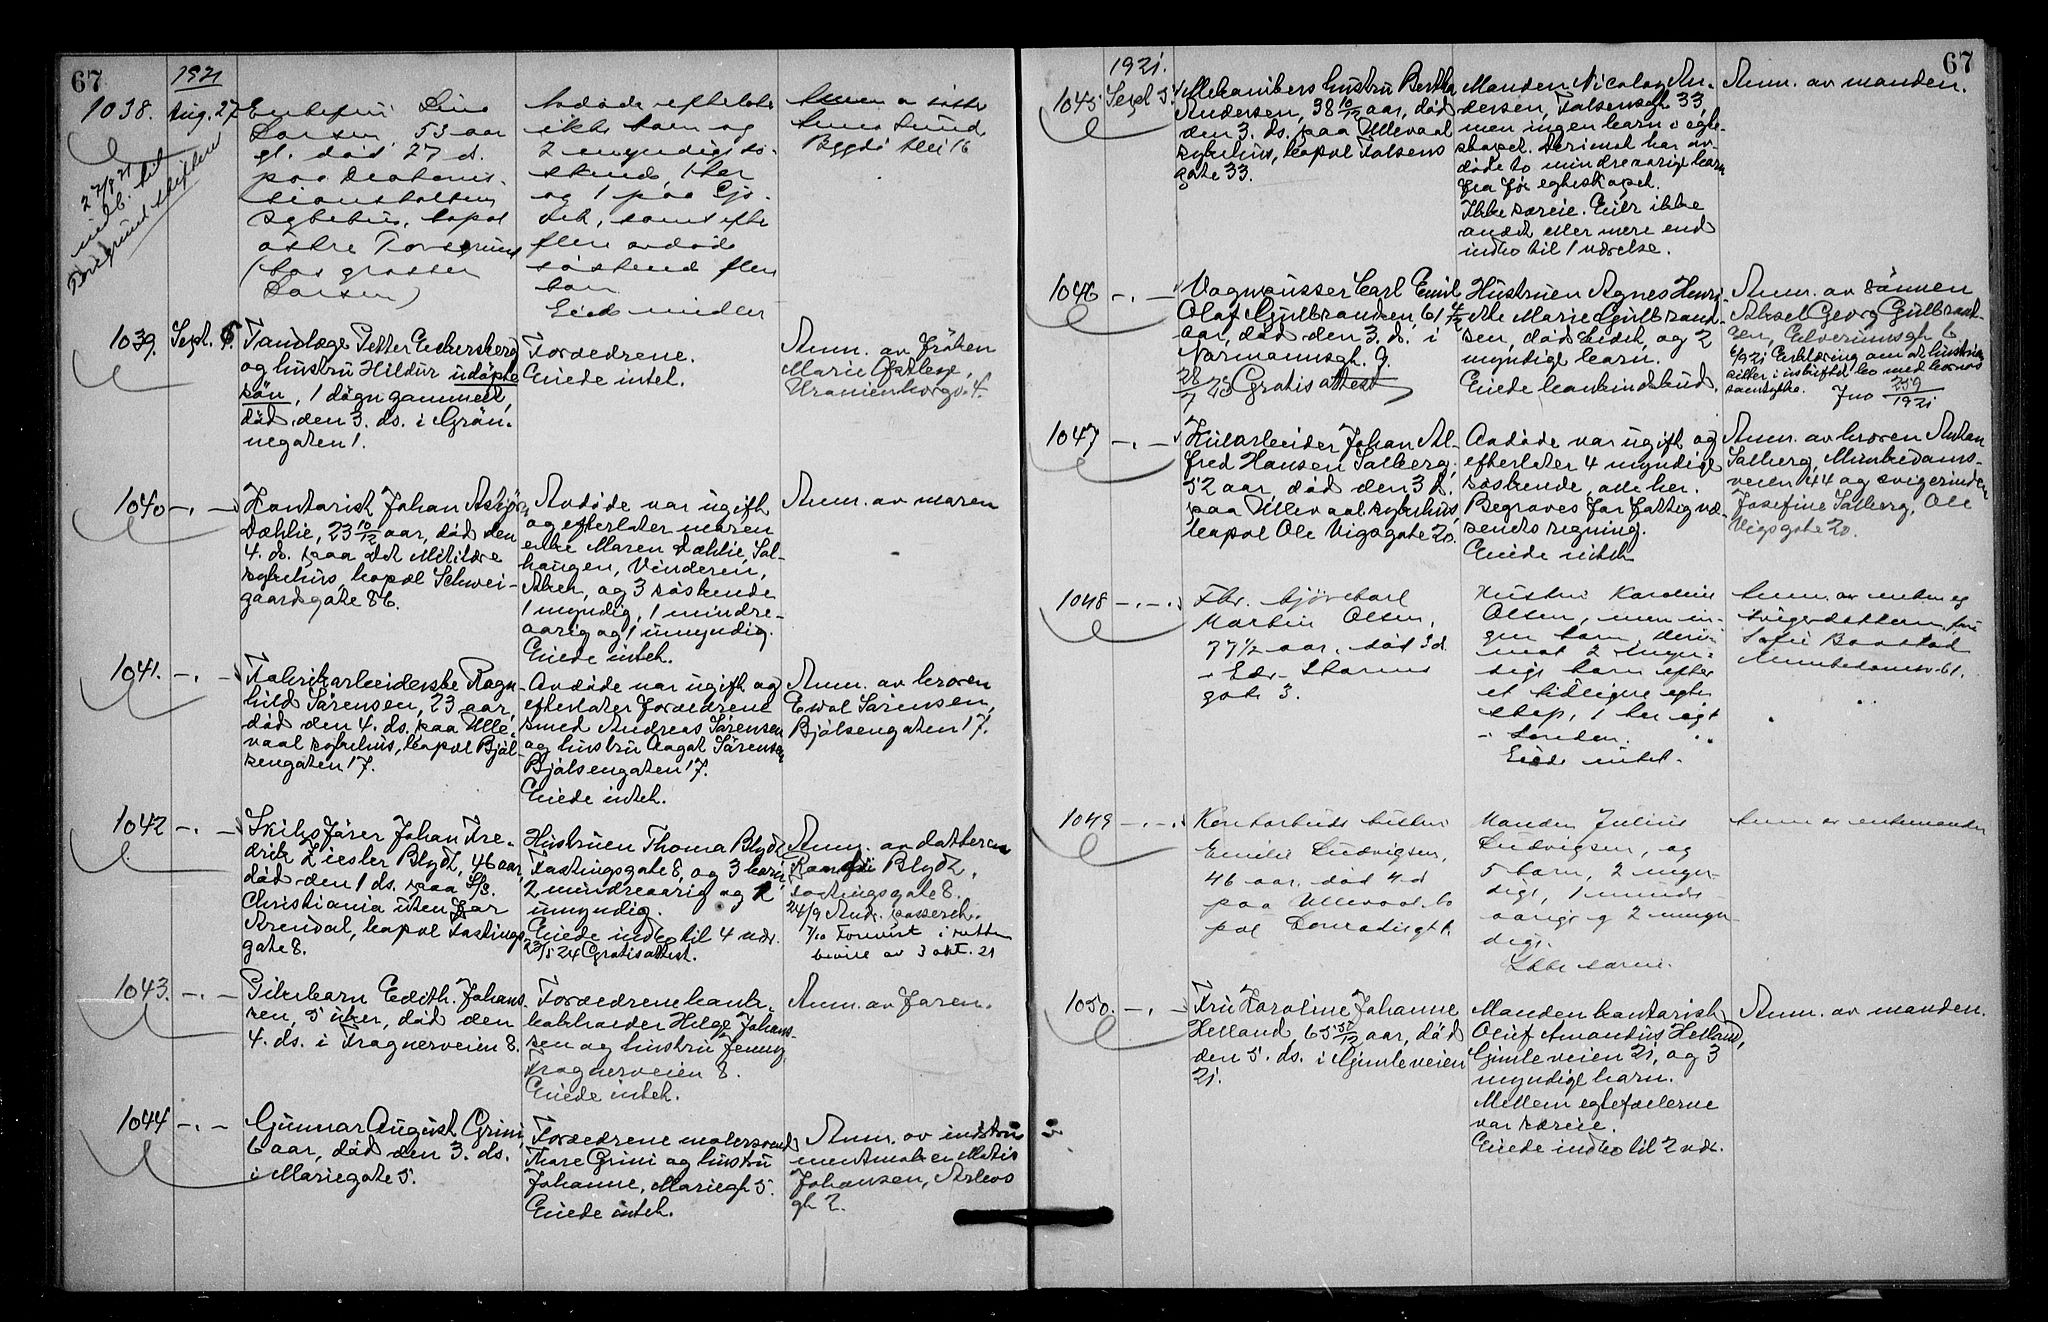 67
1921
1038.
Aug. 27
Enkefru Lina
Larsen 53 aar
gl. død 27 ds.
paa Diakonis-
seanstaltens
sykehus, bopæl
østre Porsgrund
(hos grosser
Larsen)
Avdøde efterlot
ikke barn og
2 myndige sø-
skende 1 her
og 1 paa Gjø-
vik, samt efter
flere avdøde
søskende flere
barn
Eiede midler
Anm. av søster
Bygdø Allé 16
27/9 21
medd. til
Porsgrund skifteret
1039.
Sept. 5
Tandlæge Petter Eckersberg
og hustru Hildur udøpte
søn, 1 døgn gammel,
død den 3. ds. i Grøn-
negaten 1.
Forældrene.
Eiede intet.
Anm. av frøken
Marie
Uranienborgv. 4.
1040 -.-
Kontorist Johan Asbjørn
Dæhlie, 23 10/12 aar, død den
4. ds. paa det Militære
sykehus, bopæl Schwei-
gaardsgate 86.
Avdøde var ugift
og efterlater moren
enke Maren Dæhlie, Sol-
haugen, Vinderen,
Aker, og 3 søskende
1 myndig, 1 mindre-
aarig og 1 umyndig.
Eiede intet.
Anm. av moren
1041. -.-
Fabrikarbeiderske Ragn-
hild Sørensen, 23 aar,
død den 4. ds. paa Ulle-
vaal sykehus, bopæl Bjøl-
sengaten 17.
Avdøde var ugift og
efterlater forældrene
smed Andreas Sørensen
og hustru Aagot Sørensen
Bjølsengaten 17.
Eiede intet.
Anm. av broren
Ewal Sørensen,
Bjølsengaten 17.
1042 -.-
Skibsfører Johan Fre-
drik Ziesler Blydt, 46 aar,
død den 1 ds. paa S/S.
Christiania uten for
Arendal, bopæl Fastings
gate 8.
Hustruen Thoma Blydt
Fastingsgate 8, og 3 barn,
2 mindreaarig og 1
umyndig.
Eiede indbo til 4 vær.
23/5 24 Gratisattest.
Anm. av datteren
Randi Blydt,
Fastingsgate 8.
24/9 Andr. passerch.
7/10 Forevist i retten
bevill av 3 okt. 21
1043. -.-
Pikebarn Edith Johans-
sen, 5 uker, død den
4. ds. i Frognerveien 8.
Forældrene bank-
bokholder Helge Johans-
sen og hustru Jenny
Frognerveien 8.
Eiede intet.
Anm. av faren.
1044 -.-
Gunnar August Grini,
6 aar, død den 3. ds.
i Mariegate 5.
Forældrene malersvend
Thore Grini og hustru
Johanne, Mariegt 5.
Eiede intet.
Anm. av instru-
mentmaker
Johansen,
gt 2.
67
1921.
1045 Sept 5.
Mekanikers hustru Bertha
Andersen, 38 10/12 aar, død
den 3. ds. paa Ullevaal
sykehus, bopæl Falsens
gate 33.
Manden Nicolay An-
dersen, Falsensgt 33,
men ingen barn i egte-
skapet. Derimot har av-
døde to mindreaarige barn
fra før egteskapet.
Ikke særeie. Eier ikke
andet eller mere end
indbo til 1 værelse.
Anm. av manden.
1046 -.-
Vognpusser Carl Emil
Olaf Gulbrandsen, 61 4/12
aar, død den 3. ds. i
Normannsgt. 9.
28/7 23 Gratisattest
Hustruen Agnes Henri-
ette Marie Gulbrand-
sen, død Eidet, og 2
myndige barn.
Anm. av sønnen
Aksel Georg Gulbrand-
sen, Elverumsgt 6
6/9 21 Erklæring om at hustruen
sitter i uskiftet bo med barnas
samtykke.
Jno 259/1921
1047 -.-
Johan Al-
fred Hansen Salberg,
52 aar, død den 3 ds.
paa Ullevaal sykehus,
bopæl Ole Vigsgate 20.
Avdøde var ugift og
efterlater 4 myndige
søskende, alle her.
Begraves for fattigvæ-
senets regning.
Eiede intet
Anm. av broren Anton
Salberg, Munkedams-
veien 44 og svigerinden
Josefine Salberg, Ole
Vigsgate 20.
1048 -.-.
Fhv. kjørekarl
Martin Olsen,
77 1/2 aar, død 3 d.
i Edv. Storms
gate 3.
Hustru Karoline
Olsen, men in-
gen barn, deri-
mot 2 myn-
dige barn efter
et tidligere egte-
skap, 1 her og 1
i London.
Eiede intet.
Anm. av enken og
svigerdatteren, fru
Sofie Baastad
Munkedamsv. 61.
1049 -.-.
Kontorbuds hustru
Emilie Ludvigsen,
46 aar, død 4 d
paa Ullevaal, bo
pæl Conradisgt 1.
Manden Julius
Ludvigsen, og
5 barn, 2 myn-
dige, 1 mindre
aarig og 2 umyn-
dige.
Ikke særeie.
Anm. av enkemanden
1050. -.-
Fru Karoline Johanne
Helland 65 5/12 aar, død
den 5. ds. i Gimleveien
21.
Manden kontorist
Oluf Amandus Helland,
Gimleveien 21, og 3
myndige barn.
Mellem egtefællerne
var særeie.
Eiede indbo til 2 vær.
Anm. av manden.